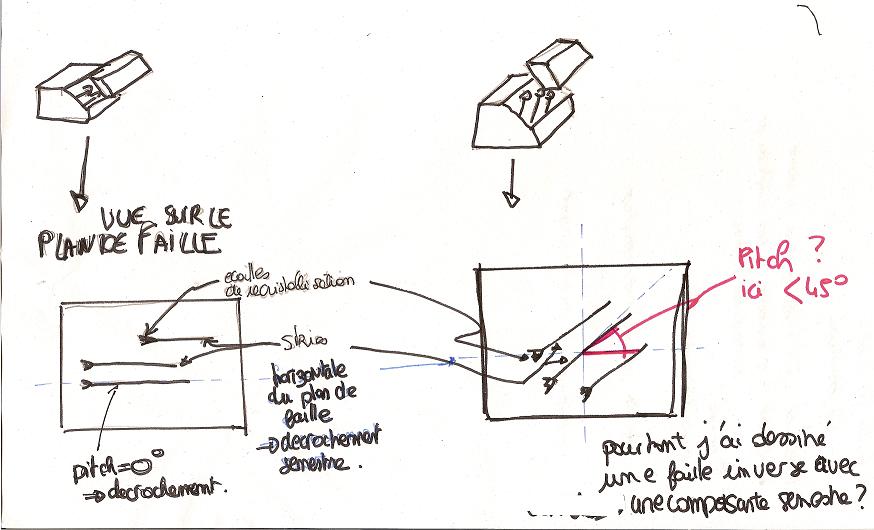 VUE SUR LE
PLAN DE FAILLE
ecailles
de recristallisation
stries
horizontale
du plan de
faille
⇒ decrochement
senestre.
pitch=0°
⇒ decrochement.
Pitch ?
ici < 45°
pourtant j'ai dessiné
une faille inverse avec
une composante senestre ?